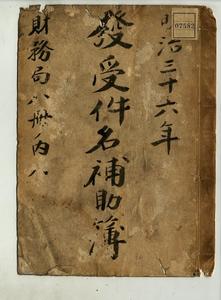 07582
明治三十六年
發受件名補助簿
財務局八冊ノ内八